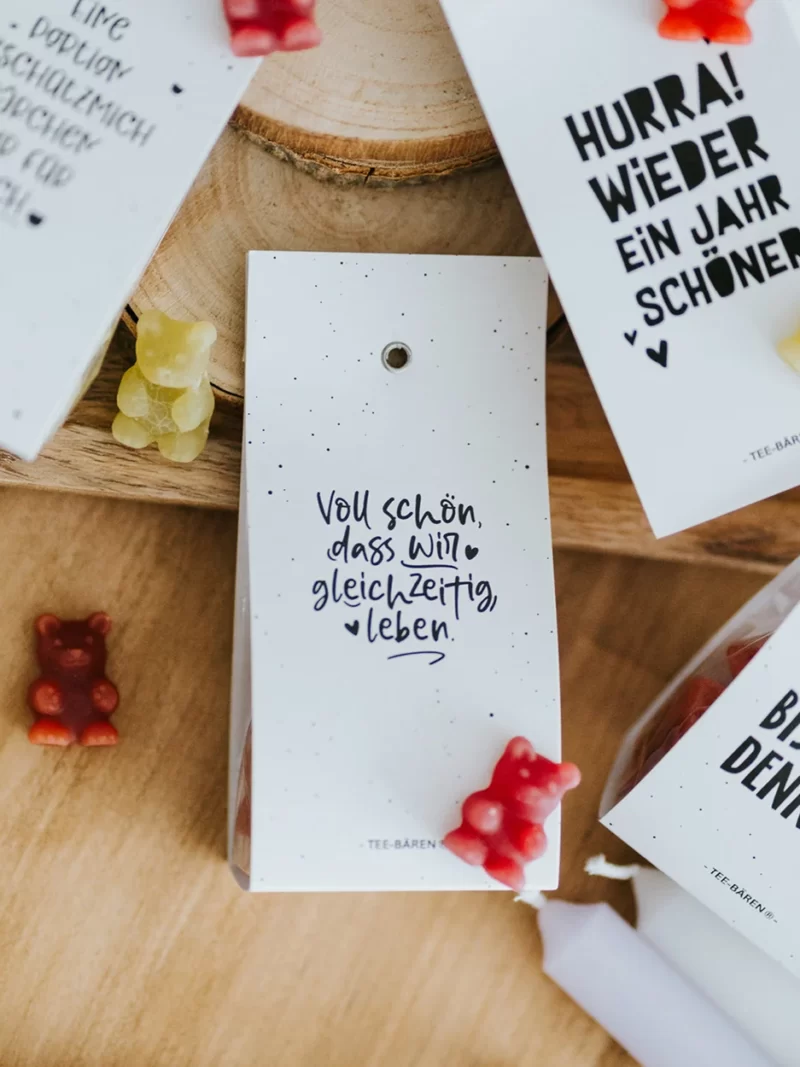 EINE
PORTION
SCHÜTZMICH
BÄRCHEN
FÜR
HURRA!
WiEDER
EiN JAHR
SCHÖNER
- TEE-BÄR
Voll schön,
dass wir
gleichzeitig
leben.
- TEE-BÄREN®
BIS
DENN
- TEE-BÄREN® -